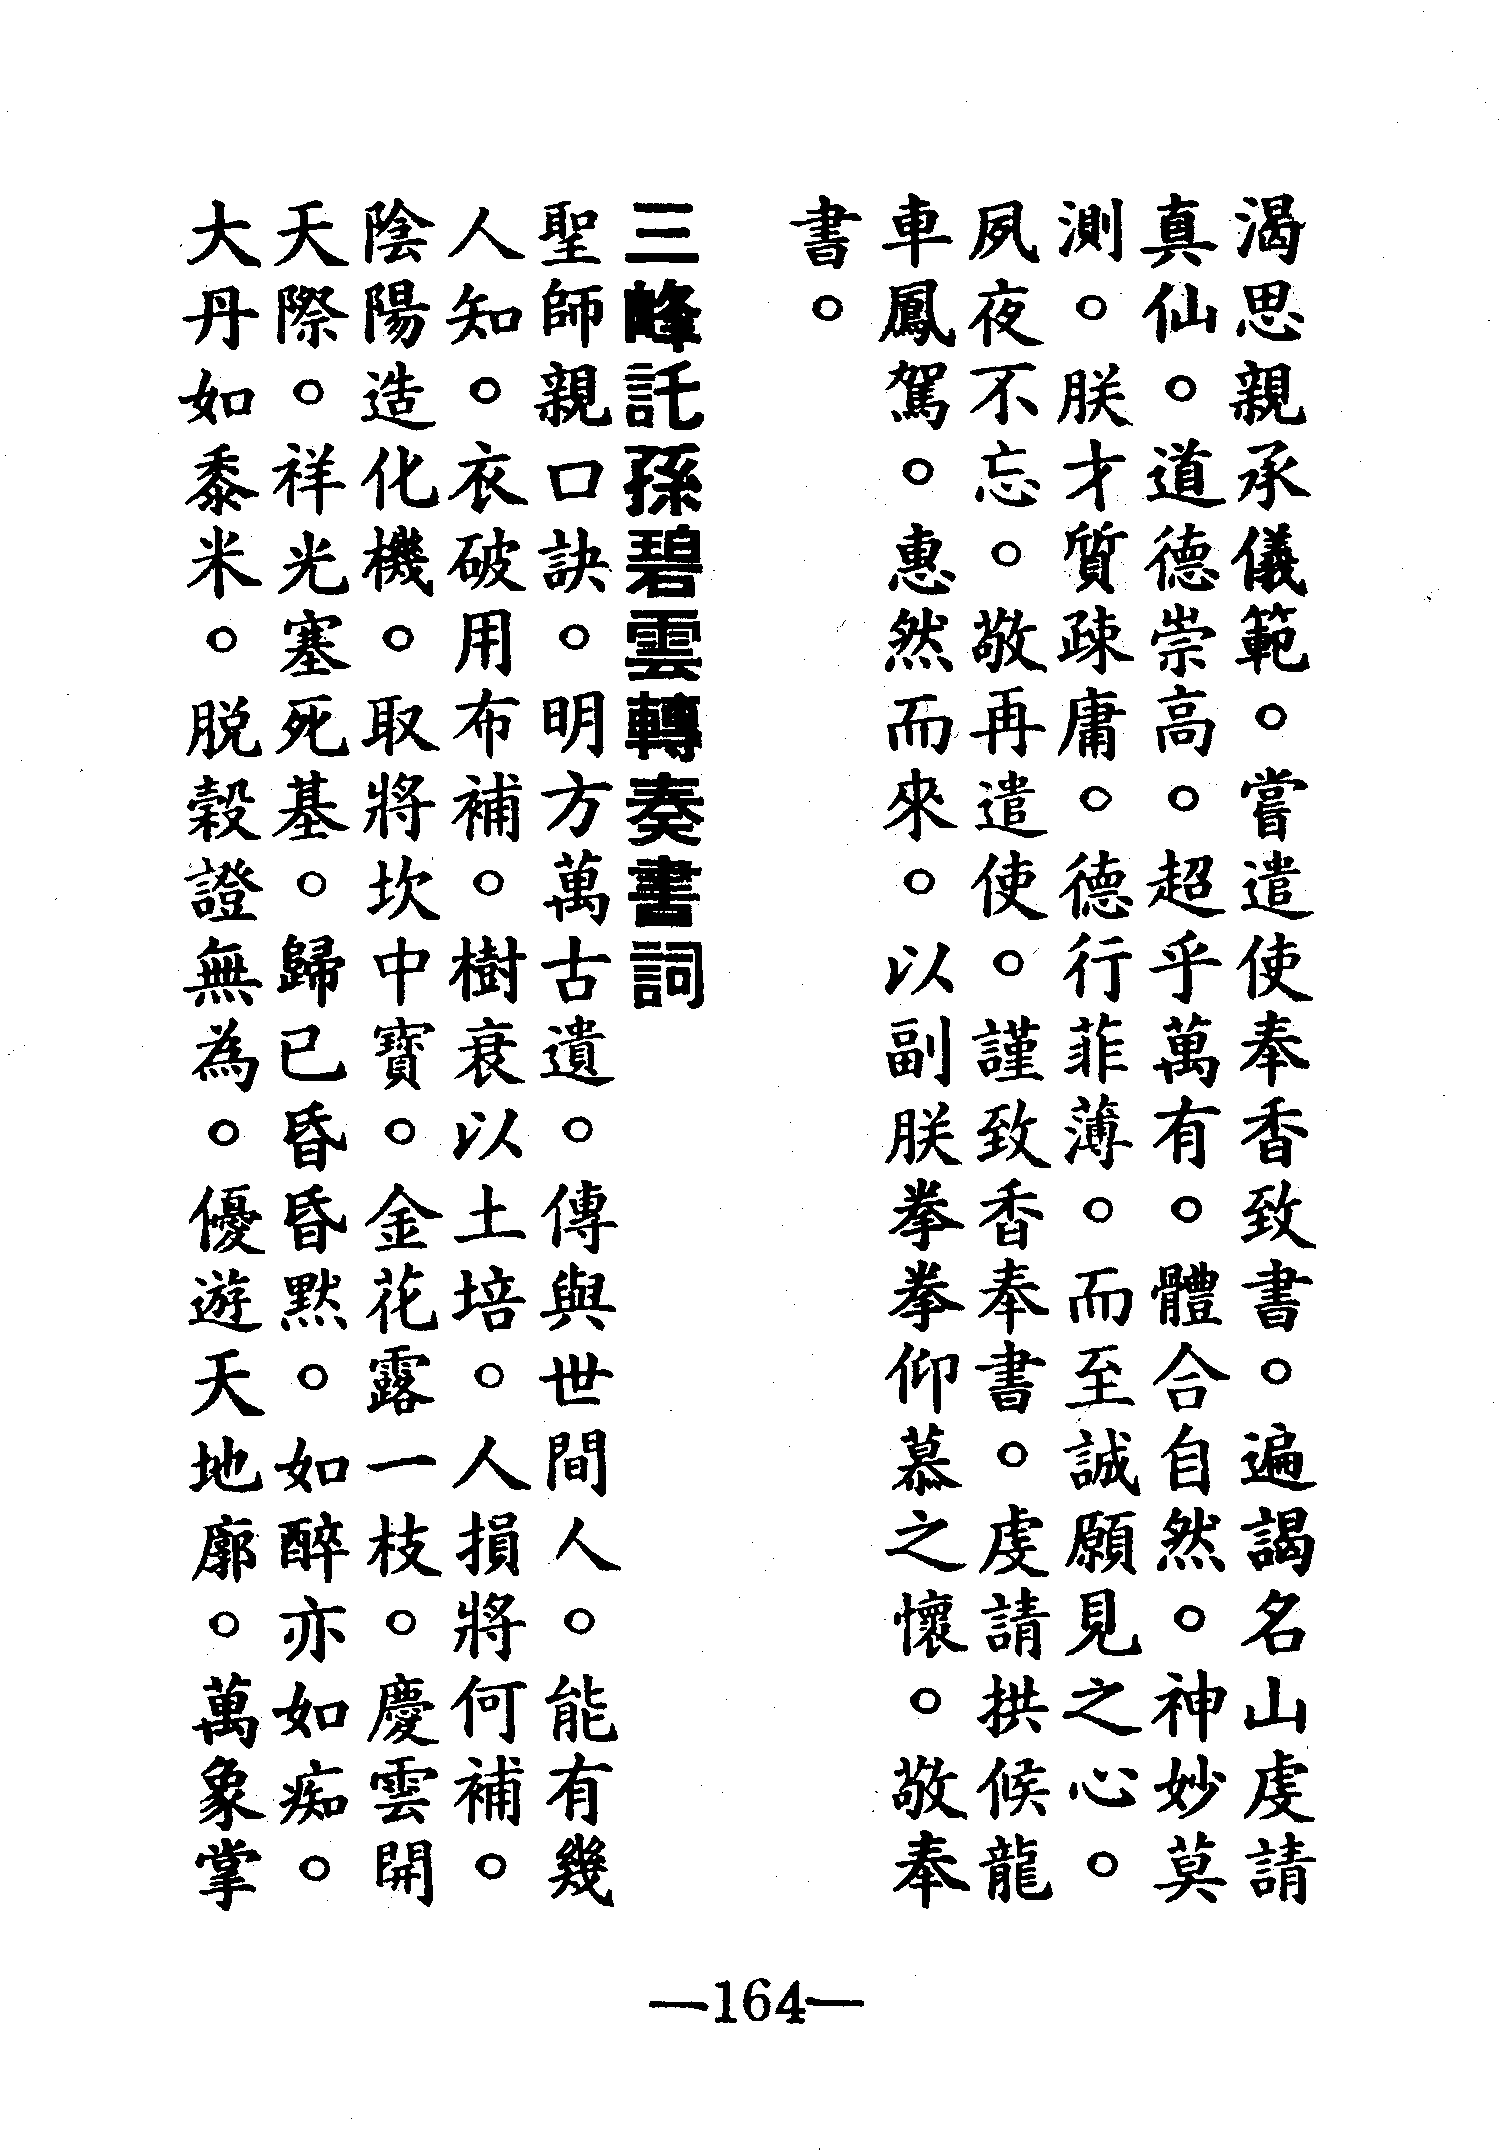 渴思親承儀範。嘗遣使奉香致書。遍謁名山虔請
真仙。道德崇高。超乎萬有。體合自然。神妙莫
測。朕才質疎庸。德行菲薄。而至誠願見之心。
夙夜不忘。敬再遣使。謹致香奉書。虔請拱候龍
車鳳駕。惠然而來。以副朕拳拳仰慕之懷。敬奉
書。
三峰託孫碧雲轉奏書詞
聖師親口訣。明方萬古遺。傳與世間人。能有幾
人知。衣破用布補。樹衰以土培。人損將何補。
陰陽造化機。取將坎中寶。金花露一枝。慶雲開
天際。祥光塞死基。歸已昏昏默。如醉亦如痴。
大丹如黍米。脱穀證無為。優遊天地廓。萬象掌
—164—